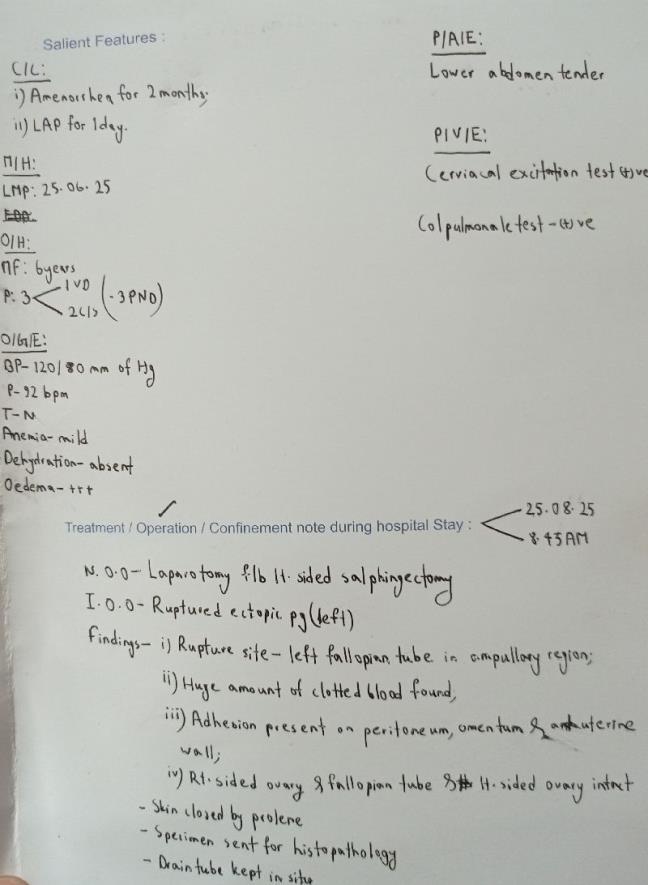 Salient Features :
C/C:
i) Amenorrhea for 2 months;
ii) LAP for 1day.
M/H:
LMP: 25.06.25
O/H:
MF: 6years
P: 3 < 1VD
2C/S (-3PND)
O/G/E:
BP- 120/80 mm of Hg
P- 92 bpm
T- N
Anemia- mild
Dehydration- absent
Oedema- +++
P/A/E:
Lower abdomen tender
P/V/E:
Cerviacal excitation test (+)ve
Colpulmonale test -(+)ve
Treatment / Operation / Confinement note during hospital Stay : 25.08.25
8.45 AM
N.O.O- Laparotomy f/b lt. sided salphingectomy
I.O.O- Ruptured ectopic pg (left)
Findings- i) Rupture site- left fallopian tube in ampullary region;
ii) Huge amount of clotted blood found,
iii) Adhesion present on peritoneum, omentum & uterine
wall;
iv) Rt. sided ovary & fallopian tube & lt. sided ovary intact
- Skin closed by prolene
- Specimen sent for histopathology
- Drain tube kept in situ